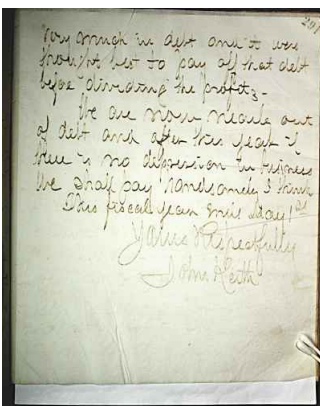 291
very much in debt and it was
thought best to pay off that debt
before dividing the profits.
We are now nearly out
of debt and after this year if
there is no depression in business
We shall pay handsomely I think
This fiscal year ends May 1st
Yours Respectfully
John Keith